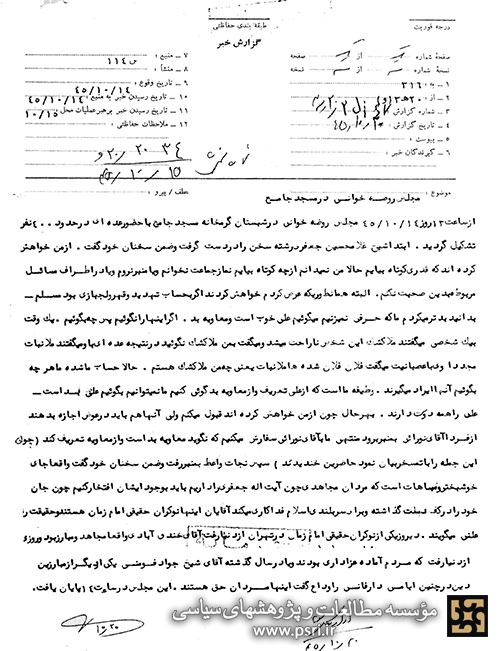 طبقه بندی حفاظتی
درجه فوریت
گزارش خبر
صفحه شماره از صفحه
نسخه شماره از نسخه
۱ - به : ۳۱۶
۲ - از : ۲۰ ه ۳
۳ - شماره گزارش
۴ - تاریخ گزارش
۵ - پیوست
۶ - گیرندگان خبر
۷ - منبع : س ۱۱۴
۸ - منشأ :
۹ - تاریخ وقوع : ۴۵/۱۰/۱۴
۱۰ - تاریخ رسیدن خبر به منبع : ۴۵/۱۰/۱۴
۱۱ - تاریخ رسیدن خبر برهبر عملیات محل ۱۰/۱۵
۱۲ - ملاحظات حفاظتی :
موضوع :
عطف / پیرو :
مجلس روضه خوانی در مسجد جامع
از ساعت ۱۳ روز ۴۵/۱۰/۱۴ مجلس روضه خوانی در شبستان گرمخانه مسجد جامع با حضور عده ای در حدود ۴۰۰ نفر
تشکیل گردید . ابتدا شیخ غلامحسین جعفری رشته سخن را در دست گرفت وضمن سخنان خود گفت . از من خواهش
کرده اند که قدری کوتاه بیایم حالا من نمیدانم از چه کوتاه بیایم نماز جماعت نخوانم ویا منبر نروم ویا در اطراف مسائل
مربوط بدین صحبت نکنم . البته همانطوریکه عرض کردم خواهش کردند اگر بحساب تهدید وقهر ولجبازی بود مسلم
بدانید بدتر میکردم ما که حرفی نمیزنیم میگوئیم علی خوب است ومعاویه بد . اگر اینها را نگوئیم پس چه بگوئیم . یک وقت
بیک شخصی میگفتند ملا کشک این شخص ناراحت میشد ومیگفت بمن ملا کشک نگوئید در نتیجه عده ای باو میگفتند ملا نبات
مجددا وی با عصبانیت میگفت فلان فلان شده ها ملا نبات یعنی چه من ملا کشک هستم . حالا حساب ما شده ما هر چه
بگوئیم آنها ایراد میگیرند . وظیفه ما است که از علی تعریف واز معاویه بدگوئی کنیم ما نمیتوانیم بگوئیم علی بد است
علی را همه دوست دارند . بهر حال چون از من خواهش کرده اند قبول میکنم ولی آنها هم باید در عوض اجازه بدهند
از فردا آقای نورائی بمنبر برود منتهی ما بآقای نورائی سفارش میکنیم که نگوید معاویه بد است واز معاویه تعریف کند ( چون
این جمله را با تمسخر بیان نمود حاضرین خندیدند ) سپس نجات واعظ بمنبر رفت وضمن سخنان خود گفت واقعا جای
خوشبختی ومباهات است که مردان مجاهدی چون آیت اله جعفری داریم باید بوجود ایشان افتخار کنیم چون جان
خود را در کف دست گذاشته وبرای سربلندی اسلام فداکاری میکند آقایان اینها نوکران حقیقی امام زمان هستند وحقیقت را
علنی میگویند . دیروز یکی از نوکران حقیقی امام زمان در تهران از دنیا رفت آقای خندق آبادی واقعا مجاهد ومبارز بود وروزی
از دنیا رفت که مردم آماده عزاداری بودند ویا در سال گذشته آقای شیخ جواد فومنی یکی از دیگر از مبارزین
دین در چنین ایامی دار فانی را وداع گفت اینها مردان حق هستند . این مجلس در ساعت پایان یافت .
۴۵/۱۰/۲۰
مؤسسه مطالعات و پژوهشهای سیاسی
www.psri.ir